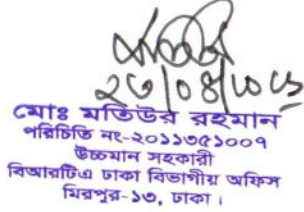 ২৩/০৪/২০২৬
মোঃ মতিউর রহমান
পরিচিতি নং-২০১১৩৫১০০৭
উচ্চমান সহকারী
বিআরটিএ ঢাকা বিভাগীয় অফিস
মিরপুর-১৩, ঢাকা।